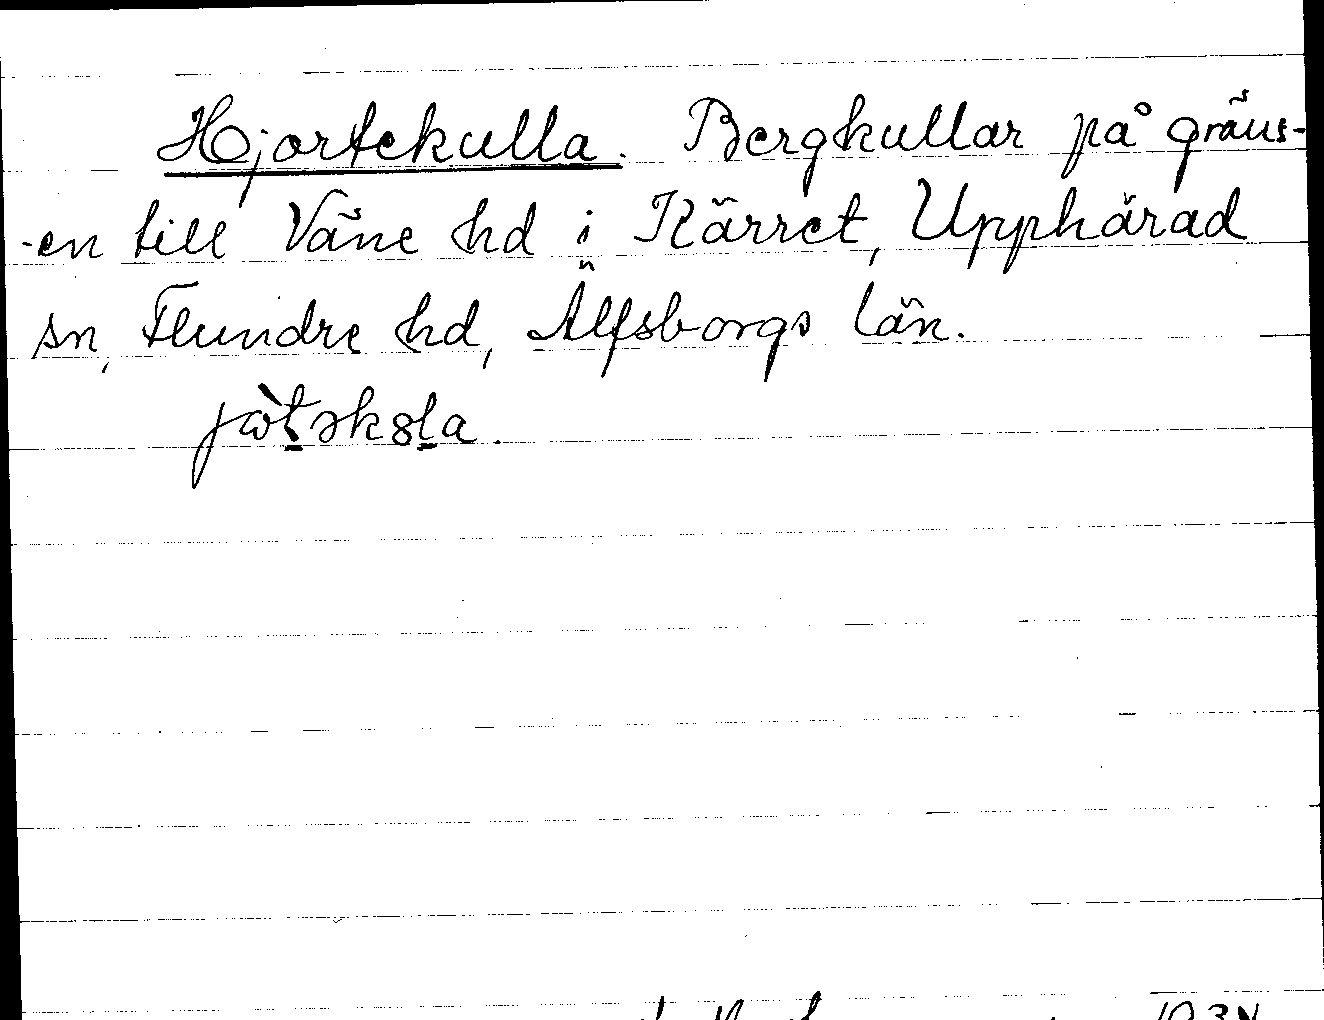 Hjortekulla. Bergkullar på gräns-
-en till Väne hd i Kärret, Upphärad
sn, Flundre hd, Älfsborgs län.
jòt̲əkȣl̲a.